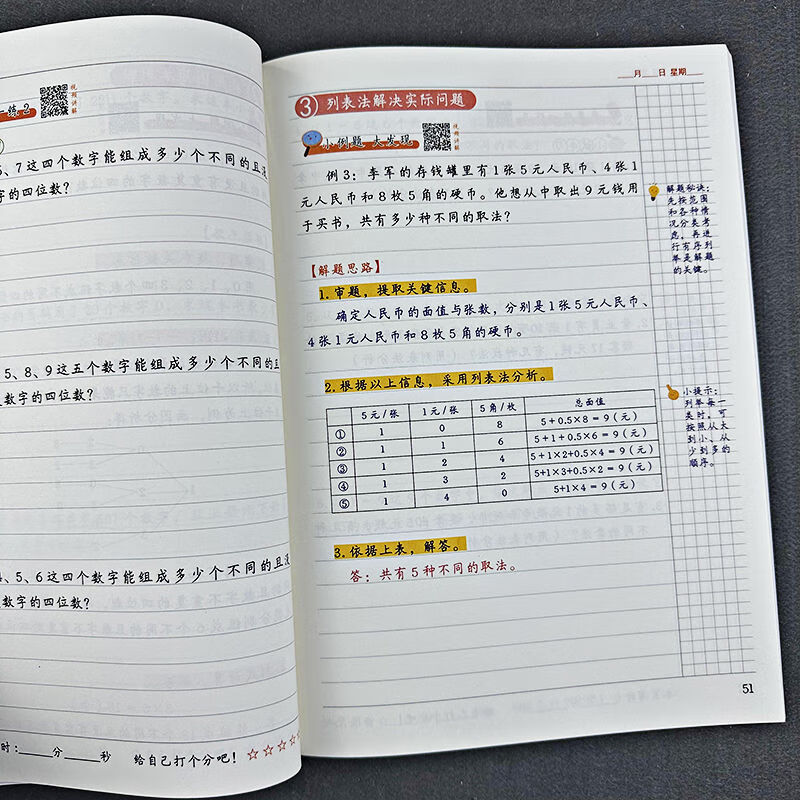 练2
视频讲解
、7这四个数字能组成多少个不同的且没
字的四位数?
5、8、9这五个数字能组成多少个不同的且
数字的四位数?
、5、6这四个数字能组成多少个不同的且没
数字的四位数?
时:____分____秒 给自己打个分吧!☆☆☆☆
____月____日 星期____
③ 列表法解决实际问题
小例题 大发现
视频讲解
例3:李军的存钱罐里有1张5元人民币、4张1
元人民币和8枚5角的硬币。他想从中取出9元钱用
于买书,共有多少种不同的取法?
【解题思路】
1.审题,提取关键信息。
确定人民币的面值与张数,分别是1张5元人民币、
4张1元人民币和8枚5角的硬币。
2.根据以上信息,采用列表法分析。
5元/张 1元/张 5角/枚 总面值
① 1 0 8 5+0.5×8=9(元)
② 1 1 6 5+1+0.5×6=9(元)
③ 1 2 4 5+1×2+0.5×4=9(元)
④ 1 3 2 5+1×3+0.5×2=9(元)
⑤ 1 4 0 5+1×4=9(元)
3.依据上表,解答。
答:共有5种不同的取法。
解题秘诀:
先按范围
和各种情
况分类考
虑,再进
行有序列
举是解题
的关键。
小提示:
列举每一
类时,可
按照从大
到小、从
少到多的
顺序。
51